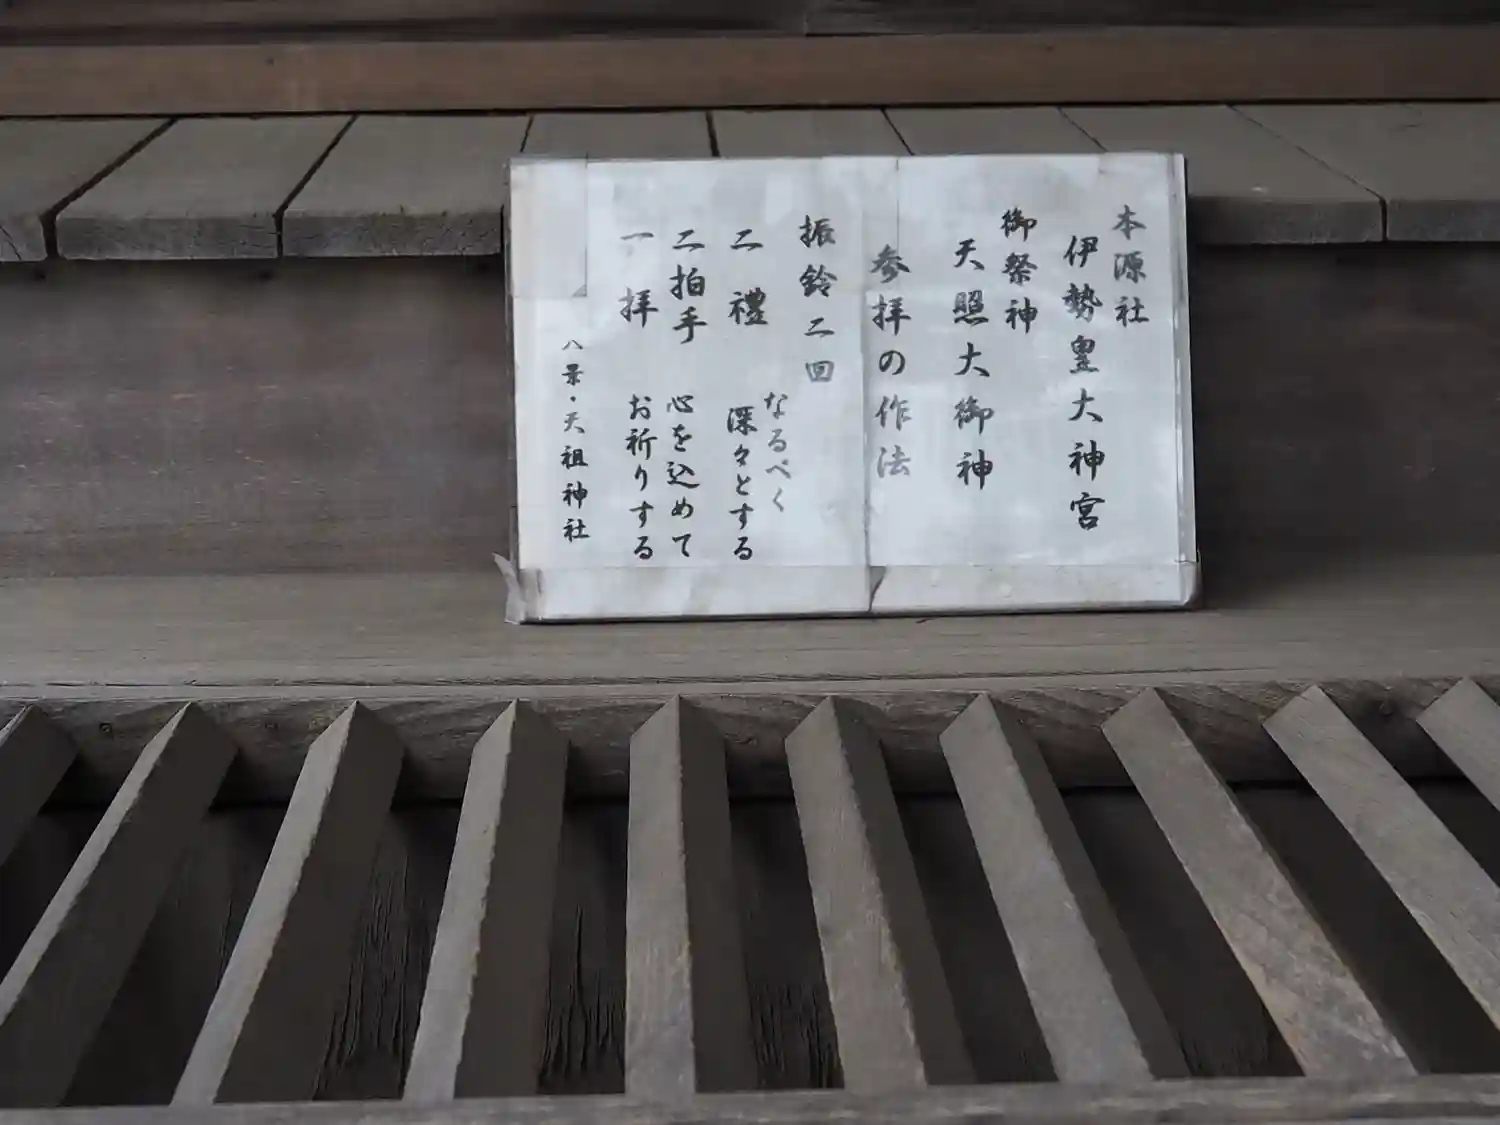 本源社
伊勢皇大神宮
御祭神
天照大御神
参拝の作法
振鈴二回
なるべく
二禮 深々とする
二拍手 心を込めて
一拝 お祈りする
八景・天祖神社